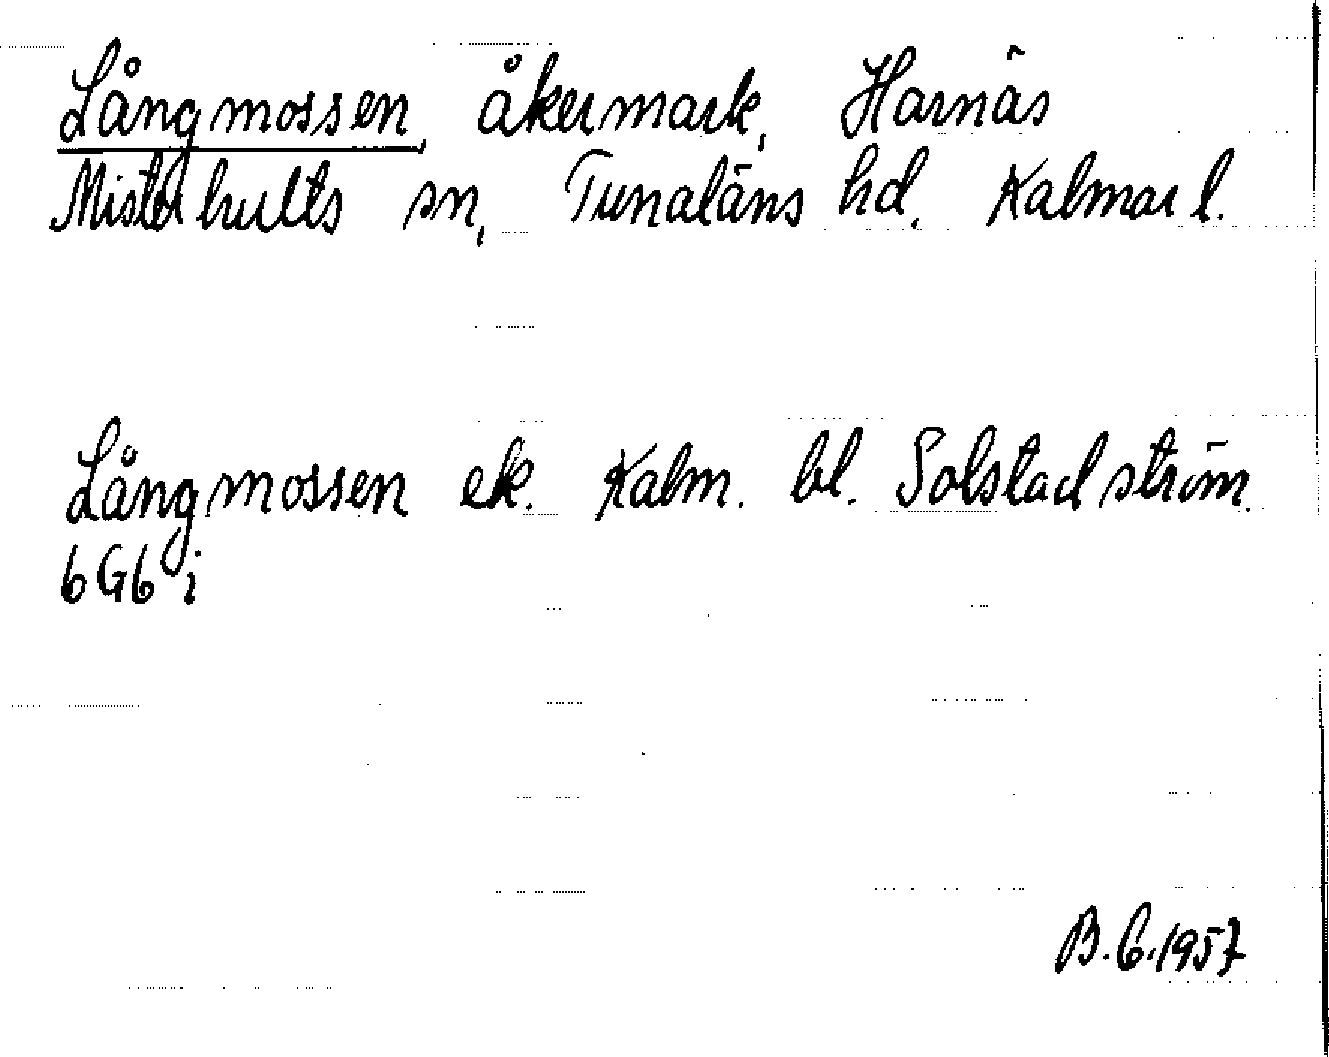 Långmossen, åkermark, Harnäs
Misterhults sn, Tunaläns hd. Kalmar l.
Långmossen ek. Kalm. bl. Solstadström.
6G6 i
B.G.1957